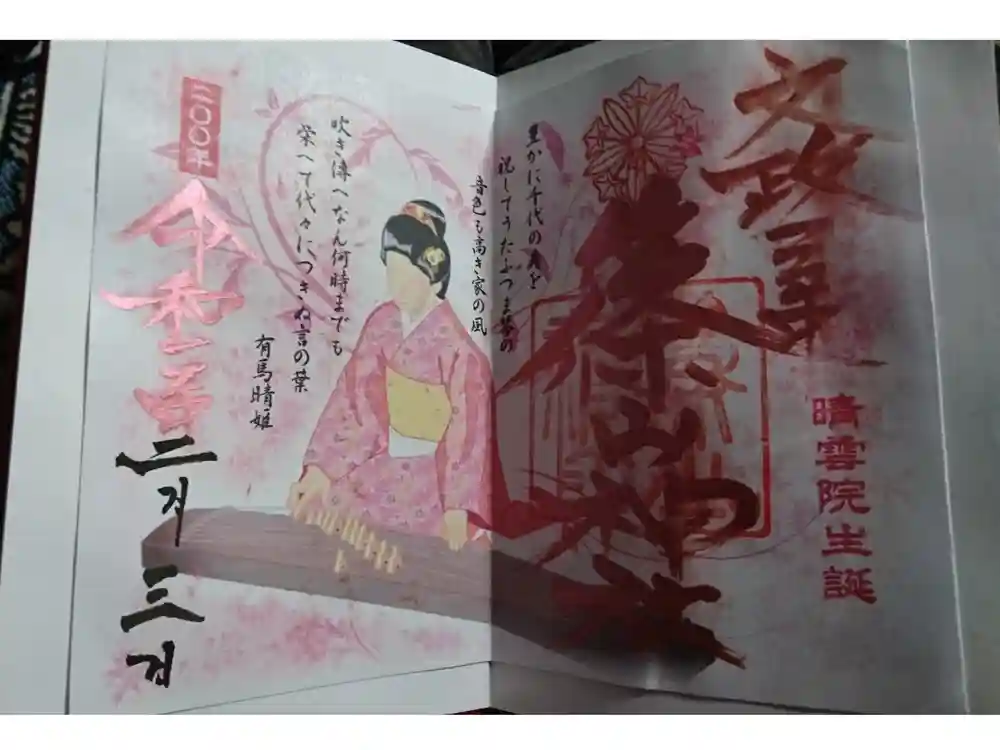 文政
晴雲院生誕
篠山神社
豊かに千代の を
祝してうたふつま琴の
音色も高き家の風
吹き傳へなん何時までも
栄へて代々につきぬ言の葉
有馬晴姫
二〇〇年
令和 二月三日